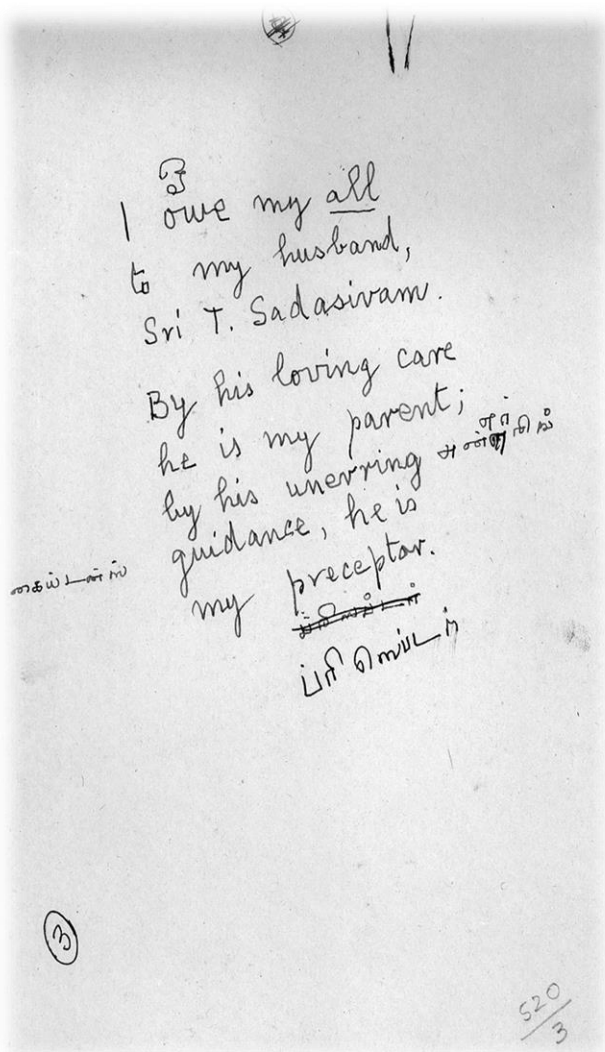 ஓ
I owe my all
to my husband,
Sri T. Sadasivam.
By his loving care
he is my parent;
by his unerring அன்எர்ரிங்
guidance, he is
கைய்டன்ஸ்
my preceptor.
ப்ரிஸெப்டர்
3
520/3